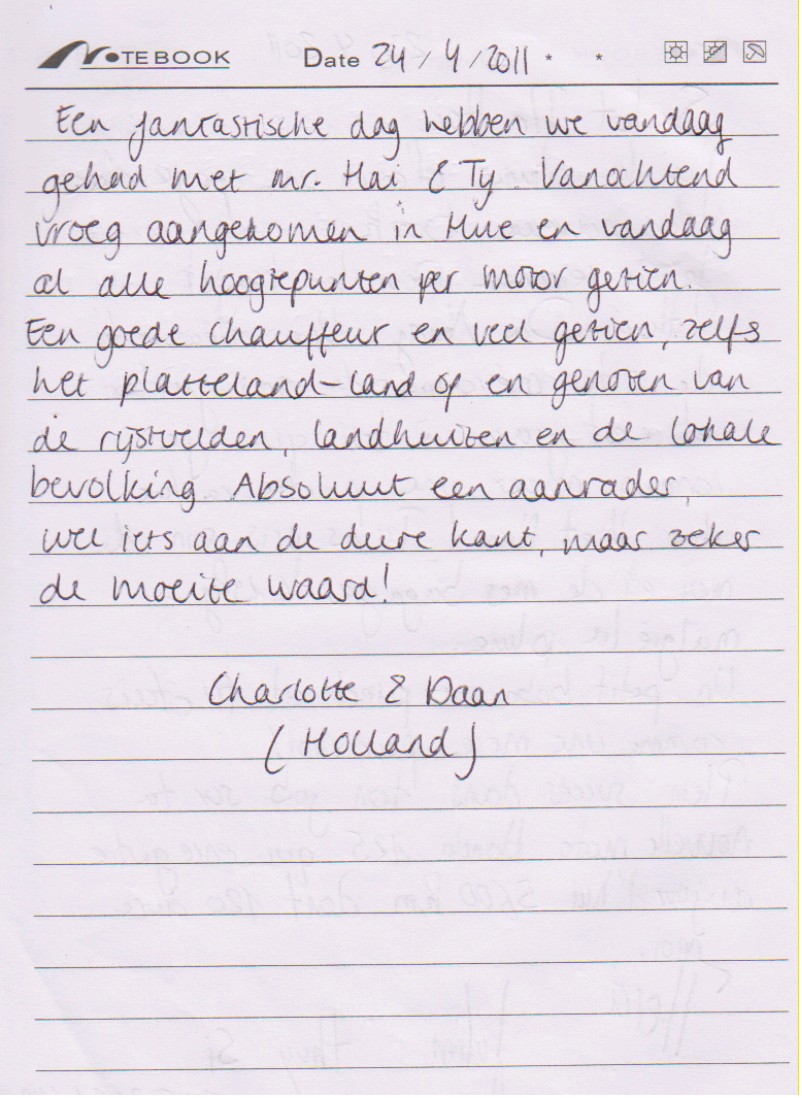 NOTEBOOK Date 24/4/2011 * *
Een fantastische dag hebben we vandaag
gehad met mr. Hai & Ty. Vanochtend
vroeg aangekomen in Hue en vandaag
al alle hoogtepunten per motor gezien.
Een goede chauffeur en veel gezien, zelfs
het platteland-land op en genoten van
de rijstvelden, landhuizen en de lokale
bevolking. Absoluut een aanrader,
wel iets aan de dure kant, maar zeker
de moeite waard!
Charlotte & Daan
(Holland)